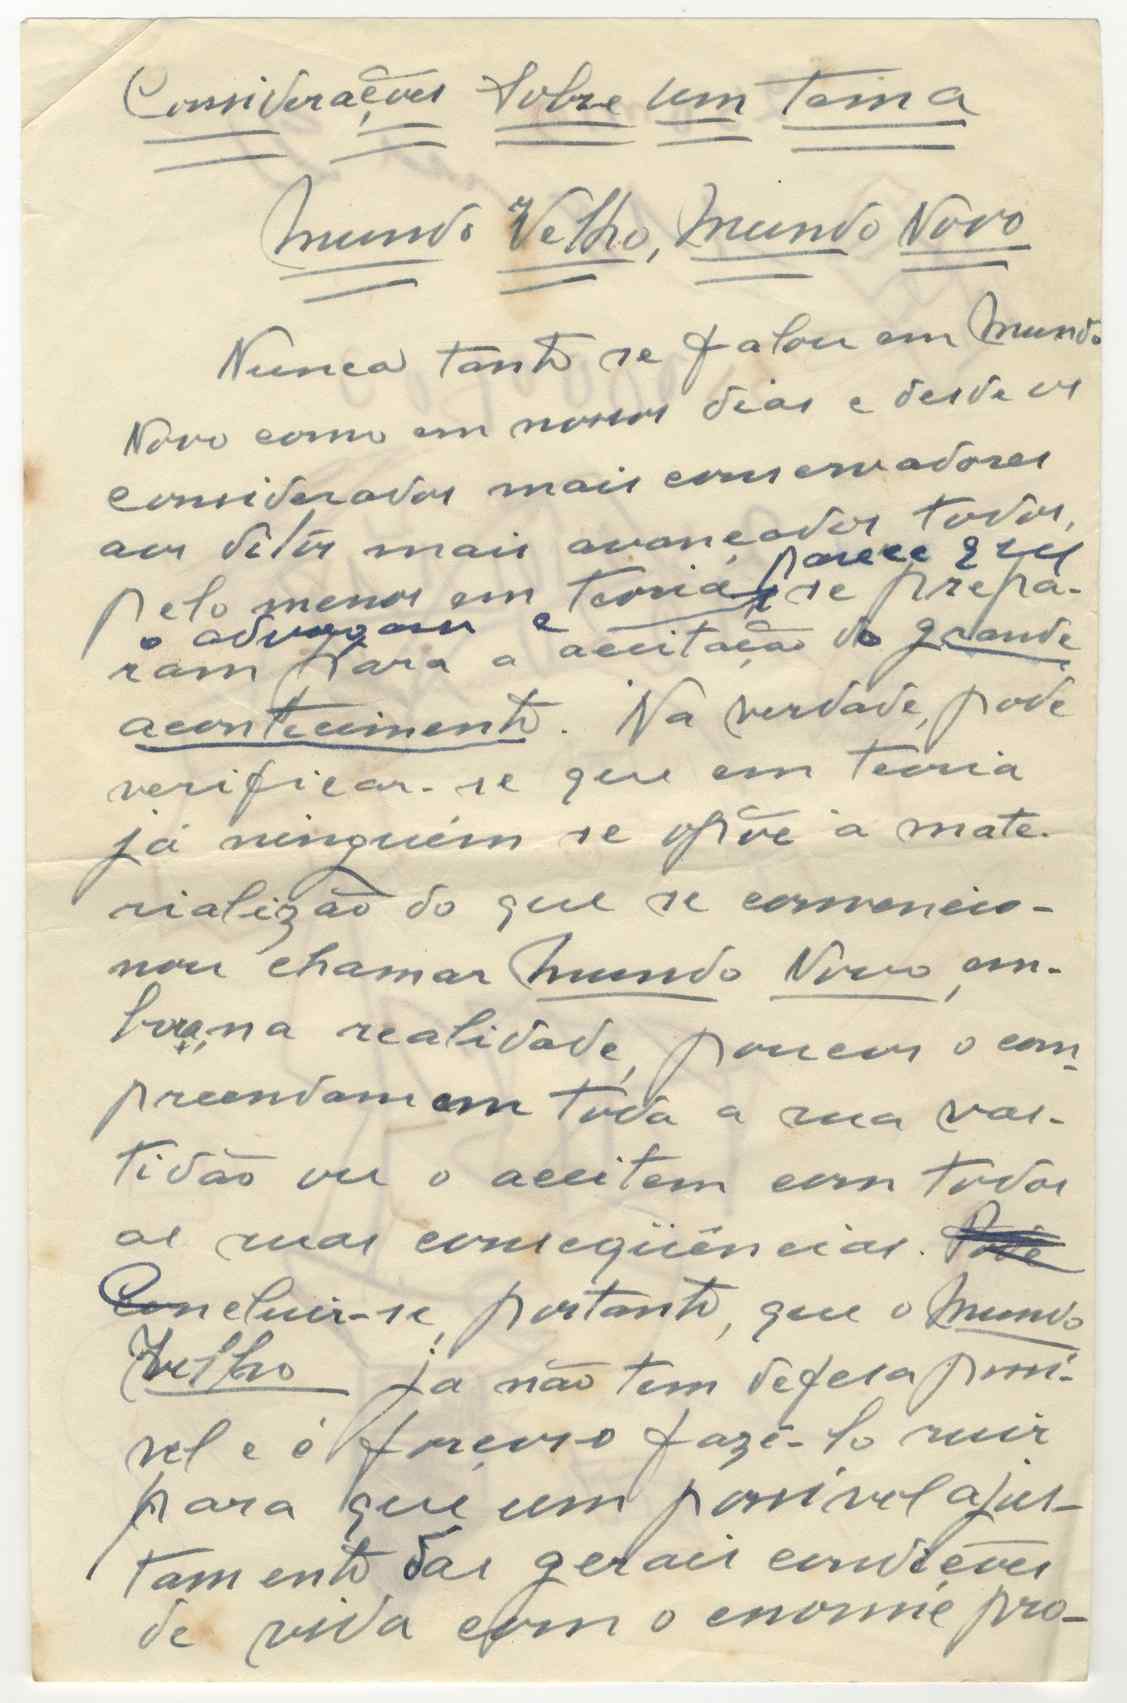 Considerações Sobre um Tema
Mundo Velho, Mundo Novo
Nunca tanto se falou em Mundo
Novo como em nossos dias e desde os
considerados mais conservadores
aos ditos mais avançados todos,
parece que
pelo menos em teoria, se prepa-
o advogam e
ram para a aceitação do grande
acontecimento. Na verdade, pode
verificar-se que em teoria
já ninguém se opõe à mate-
rialização do que se convencio-
nou chamar Mundo Novo, em-
bora, na realidade, poucos o com-
preendam em toda a sua vas-
tidão ou o aceitem com todas
as suas conseqüências. Pode
Concluir-se, portanto, que o Mundo
Velho já não tem defesa possí-
vel e é forçoso fazê-lo ruir
para que um possível ajus-
tamento das gerais condições
de vida com o enorme pro-